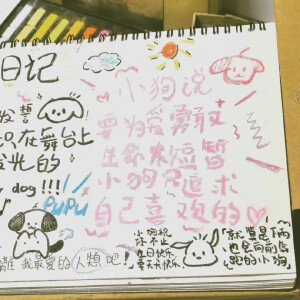 日记
小狗说
发誓
要为爱勇敢
只在舞台上
生命太短暂
发光的
小狗只追求
dog!!!
自己喜欢的
PUPU
小狗祝
你
生日快乐
天天快乐
就算是俩
也是向前
跑的小狗
我最爱的人类吧!